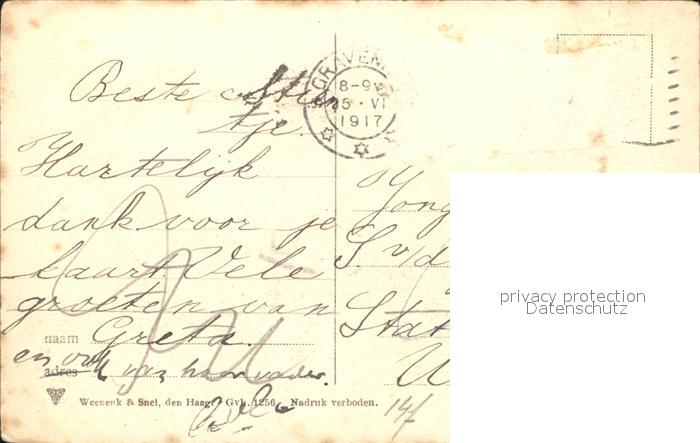 Beste Stien
tje.
Hartelijk
dank voor je
kaart. Vele
groeten van
naam Greta.
en ook
adres van haar vader.
Weenenk & Snel, den Haag. Gvh. 1256. Nadruk verboden.
GRAVENH
8-9V
25 · VI
1917
Jong
S. v/d
Stat
U
privacy protection
Datenschutz